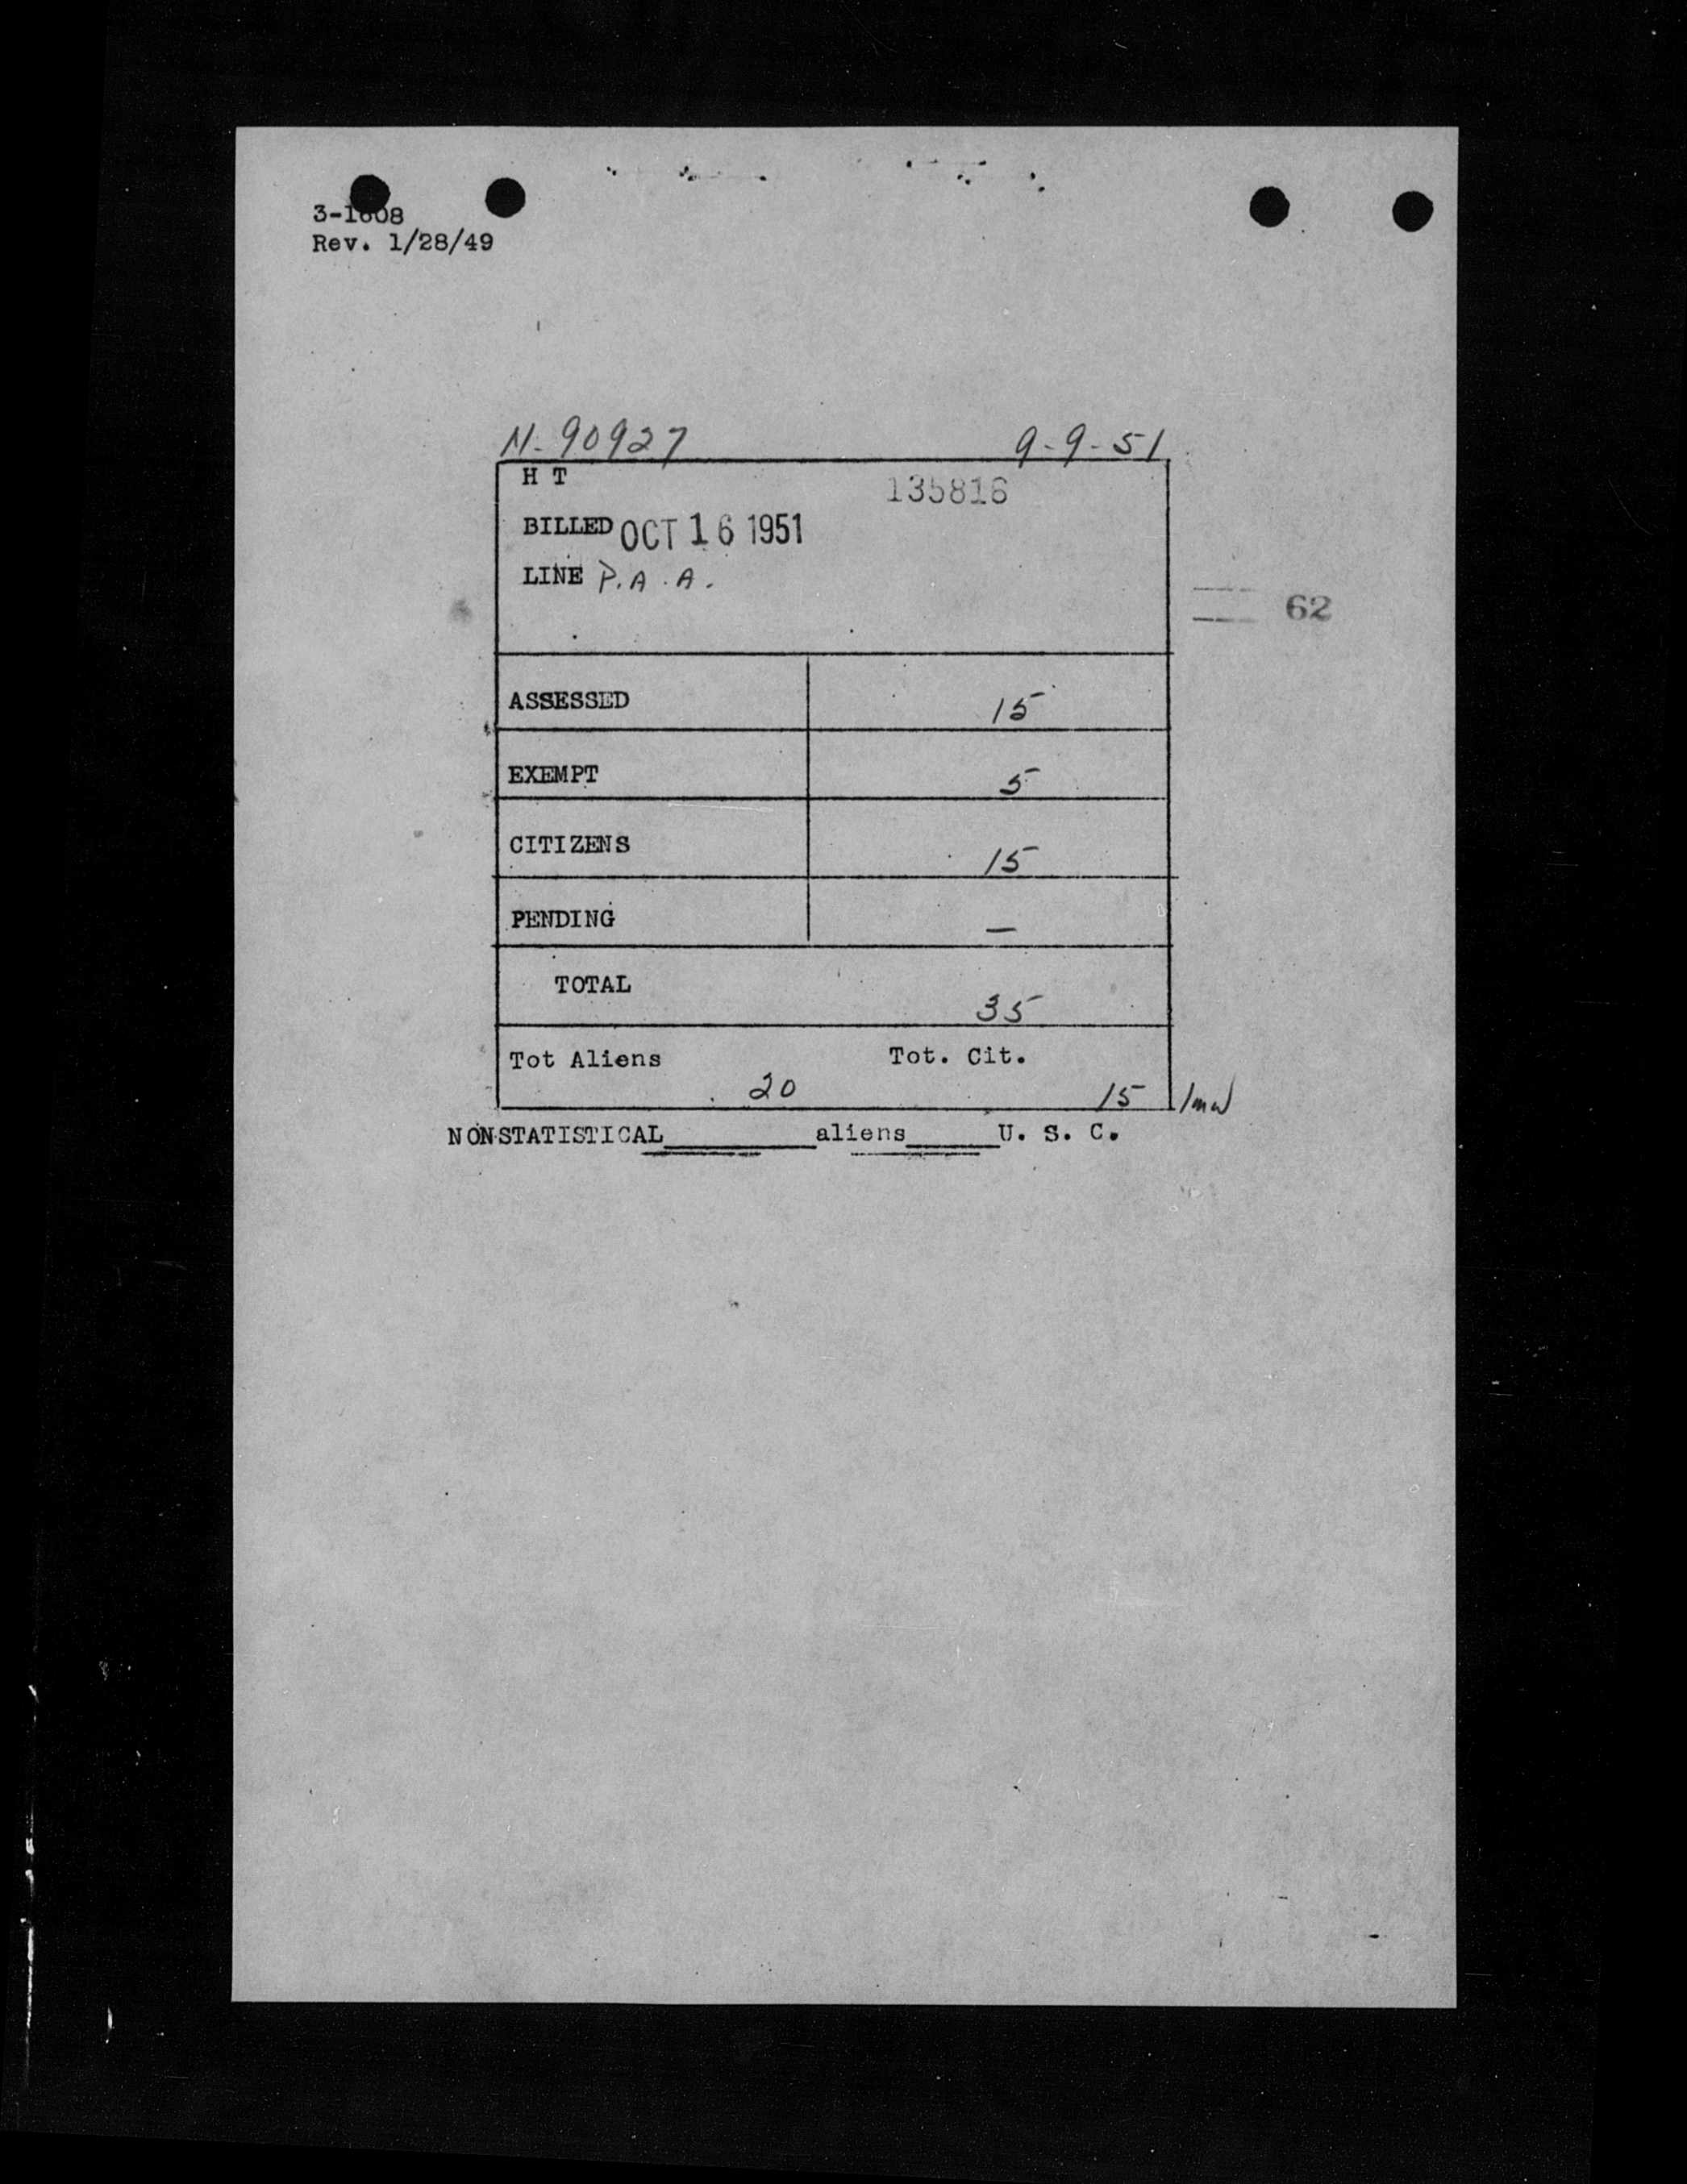 3-1608
Rev. 1/28/49
N-90927 9-9-51
H T 135816
BILLED OCT 16 1951
LINE P.A.A.
62
ASSESSED 15
EXEMPT 5
CITIZENS 15
PENDING —
TOTAL 35
Tot Aliens Tot. Cit.
20 15
NONSTATISTICAL________aliens_____U. S. C.